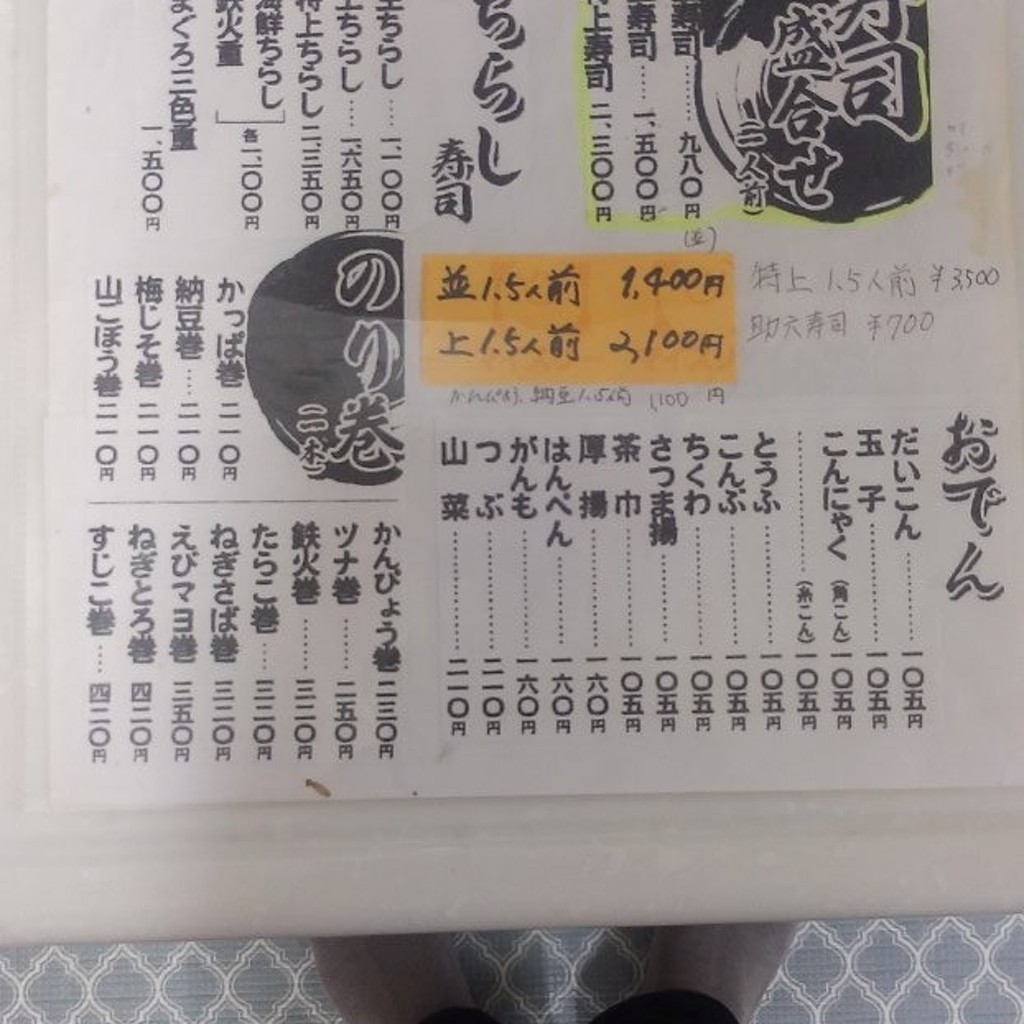 寿司
盛合せ
(一人前)
寿司……… 九八〇円
(並)
寿司…… 一、五〇〇円
特上寿司 二、三〇〇円
ちらし
寿司
生ちらし…… 一、一〇〇円
上ちらし…… 一、六五〇円
特上ちらし 二、三五〇円
海鮮ちらし
鉄火重
各 二、一〇〇円
まぐろ三色重
一、五〇〇円
並1.5人前 1,400円
上1.5人前 2,100円
特上 1.5人前 ¥3,500
助六寿司 ¥700
納豆1.5人前 1,100 円
のり巻
(二本)
かっぱ巻 二一〇円
納豆巻…… 二一〇円
梅じそ巻 二一〇円
山ごぼう巻 二一〇円
かんぴょう巻 二三〇円
ツナ巻…… 二五〇円
鉄火巻…… 三二〇円
たらこ巻…… 三二〇円
ねぎさば巻 三二〇円
えびマヨ巻 三五〇円
ねぎとろ巻 四二〇円
すじこ巻…… 四二〇円
おでん
だいこん……… 一〇五円
玉子……… 一〇五円
こんにゃく(角こん) 一〇五円
………(糸こん) 一〇五円
とうふ……… 一〇五円
こんぶ……… 一〇五円
ちくわ……… 一〇五円
さつま揚……… 一〇五円
茶巾……… 一〇五円
厚揚……… 一六〇円
はんぺん……… 一六〇円
がんも……… 一六〇円
つぶ……… 二一〇円
山菜……… 二一〇円